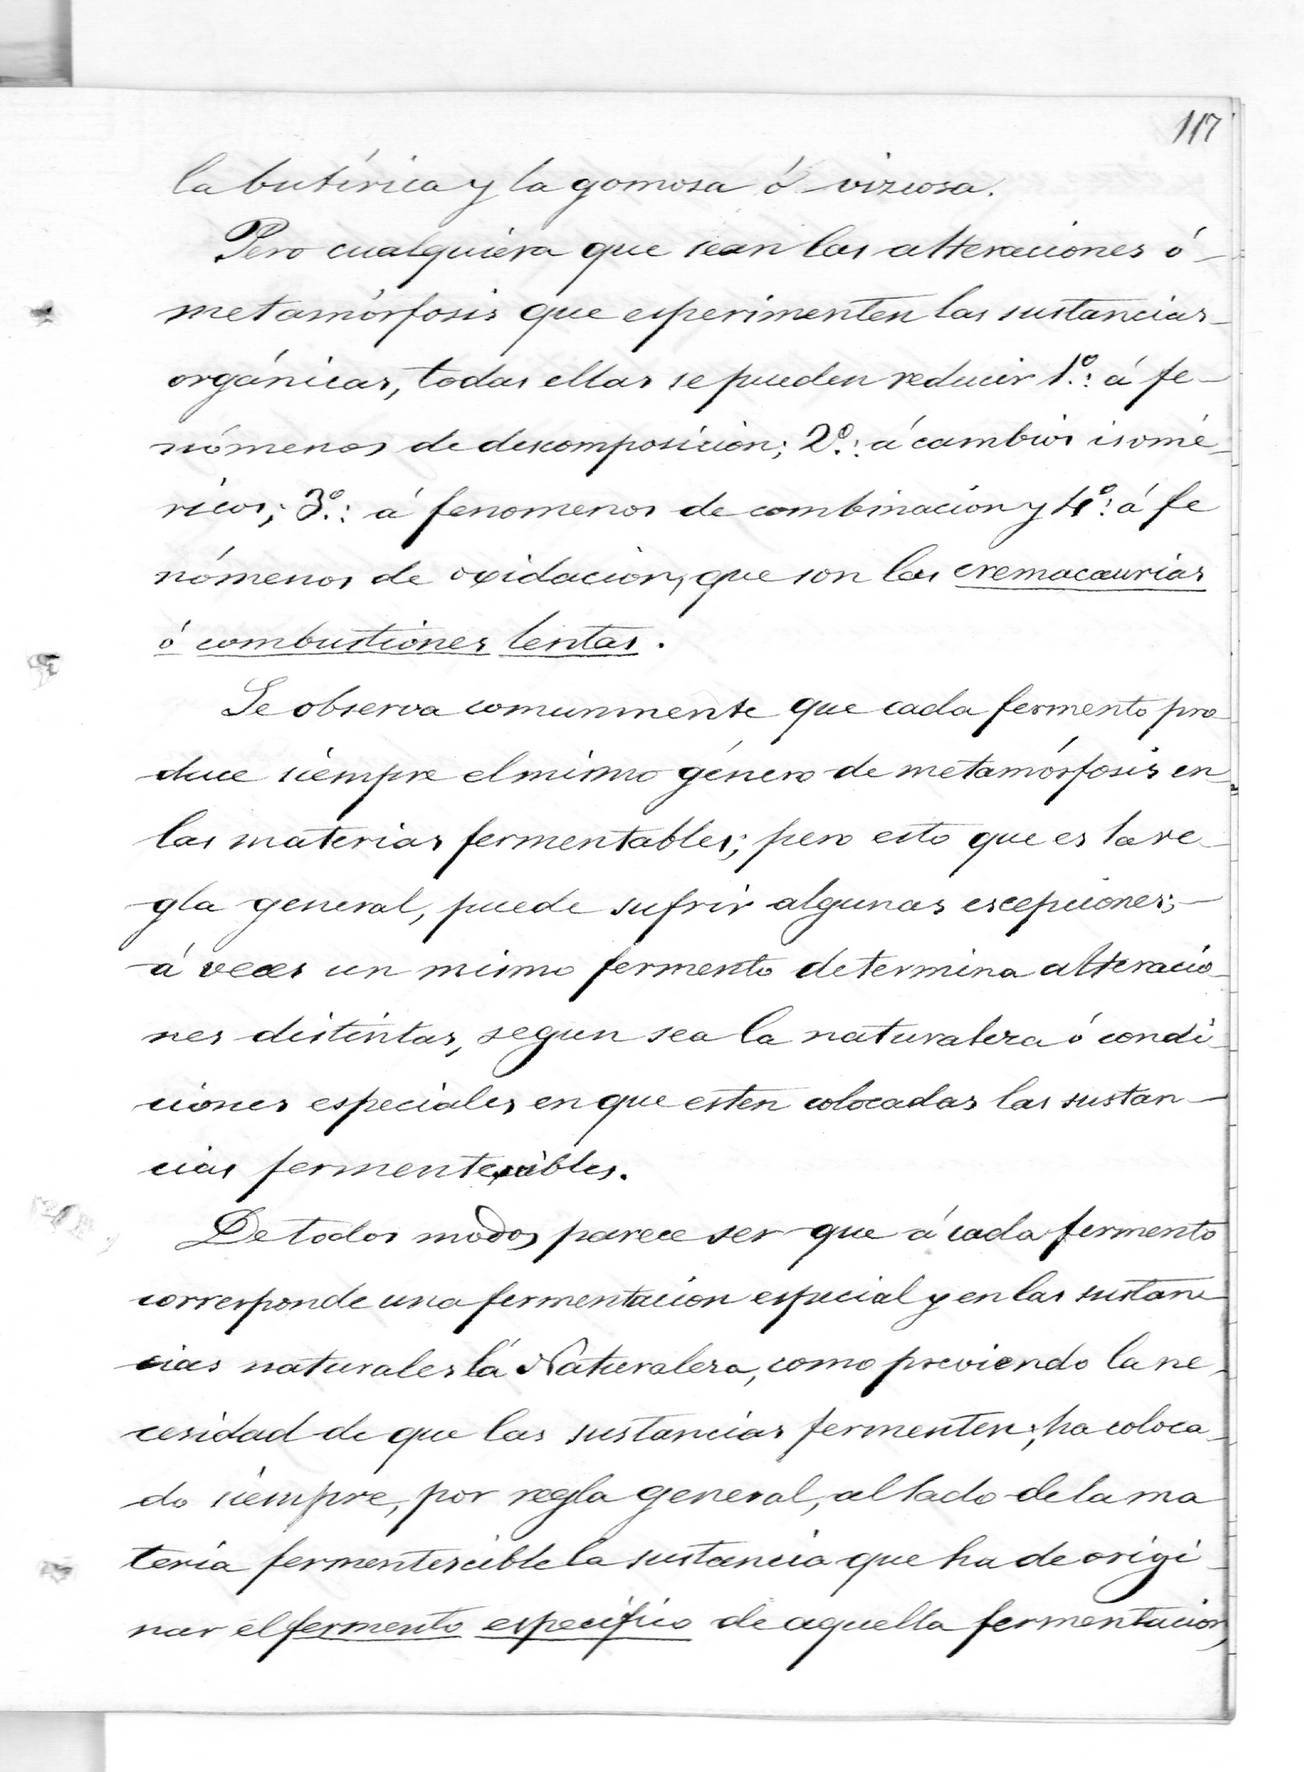 117
la butírica y la gomosa ó vizcosa.
Pero cualquiera que sean las alteraciones ó
metamórfosis que esperimenten las sustancias
orgánicas, todas ellas se pueden reducir 1.º: á fe-
nómenos de descomposición; 2.º: á cambios isomé-
ricos; 3.º: á fenomenos de combinacion y 4.º: á fe
nómenos de oxidacion, que son las cremacaurias
ó combustiones lentas.
Se observa comunmente que cada fermento pro
duce siempre el mismo género de metamórfosis en
las materias fermentables; pero esto que es la re-
gla general, puede sufrir algunas escepciones;
á veces un mismo fermento determina alteracio
nes distintas, segun sea la naturaleza ó condi
ciones especiales en que esten colocadas las sustan-
cias fermentescibles.
De todos modos parece ser que á cada fermento
corresponde una fermentacion especial y en las sustan
cias naturales la Naturaleza, como previendo la ne-
cesidad de que las sustancias fermenten, ha coloca-
do siempre, por regla general, al lado de la ma
teria fermentescible la sustancia que ha de origi-
nar el fermento específico de aquella fermentacion,